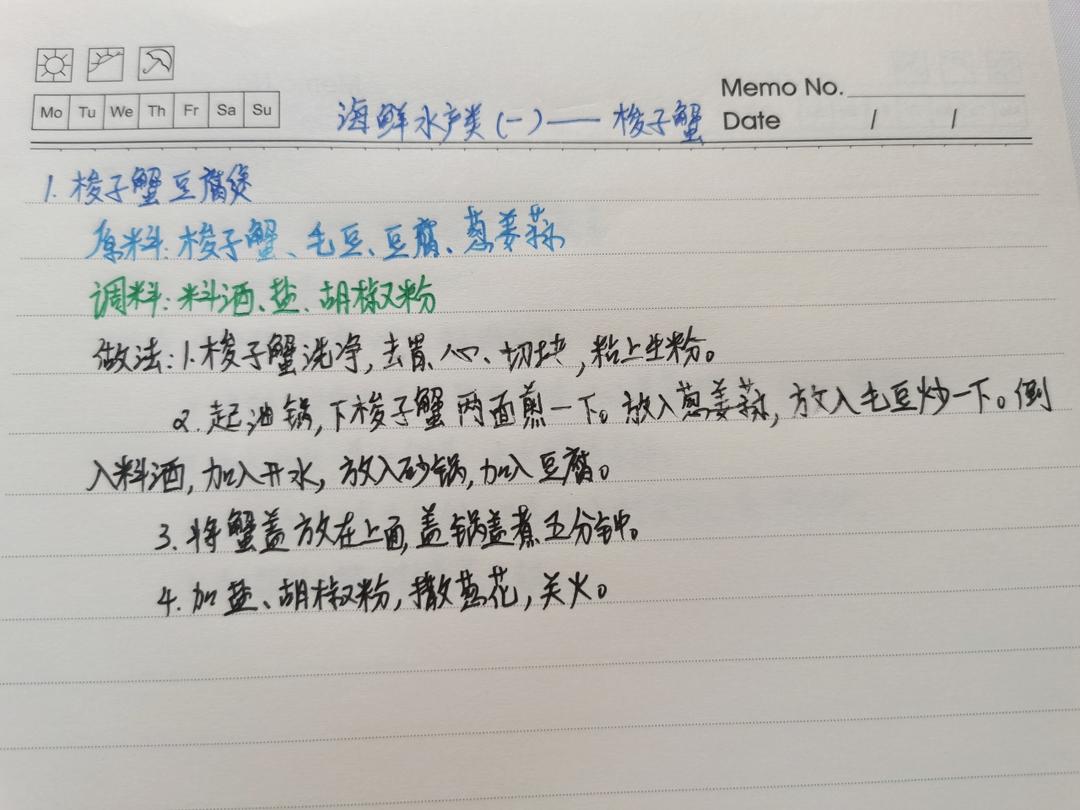 Mo Tu We Th Fr Sa Su
Memo No.
Date / /
海鲜水产类(一)——梭子蟹
1. 梭子蟹豆腐煲
原料:梭子蟹、毛豆、豆腐、葱姜蒜
调料:料酒、盐、胡椒粉
做法:1.梭子蟹洗净,去胃、心、切块,粘上生粉。
2.起油锅,下梭子蟹两面煎一下。放入葱姜蒜,放入毛豆炒一下。倒
入料酒,加入开水,放入砂锅,加入豆腐。
3.将蟹盖放在上面,盖锅盖煮五分钟。
4.加盐、胡椒粉,撒葱花,关火。